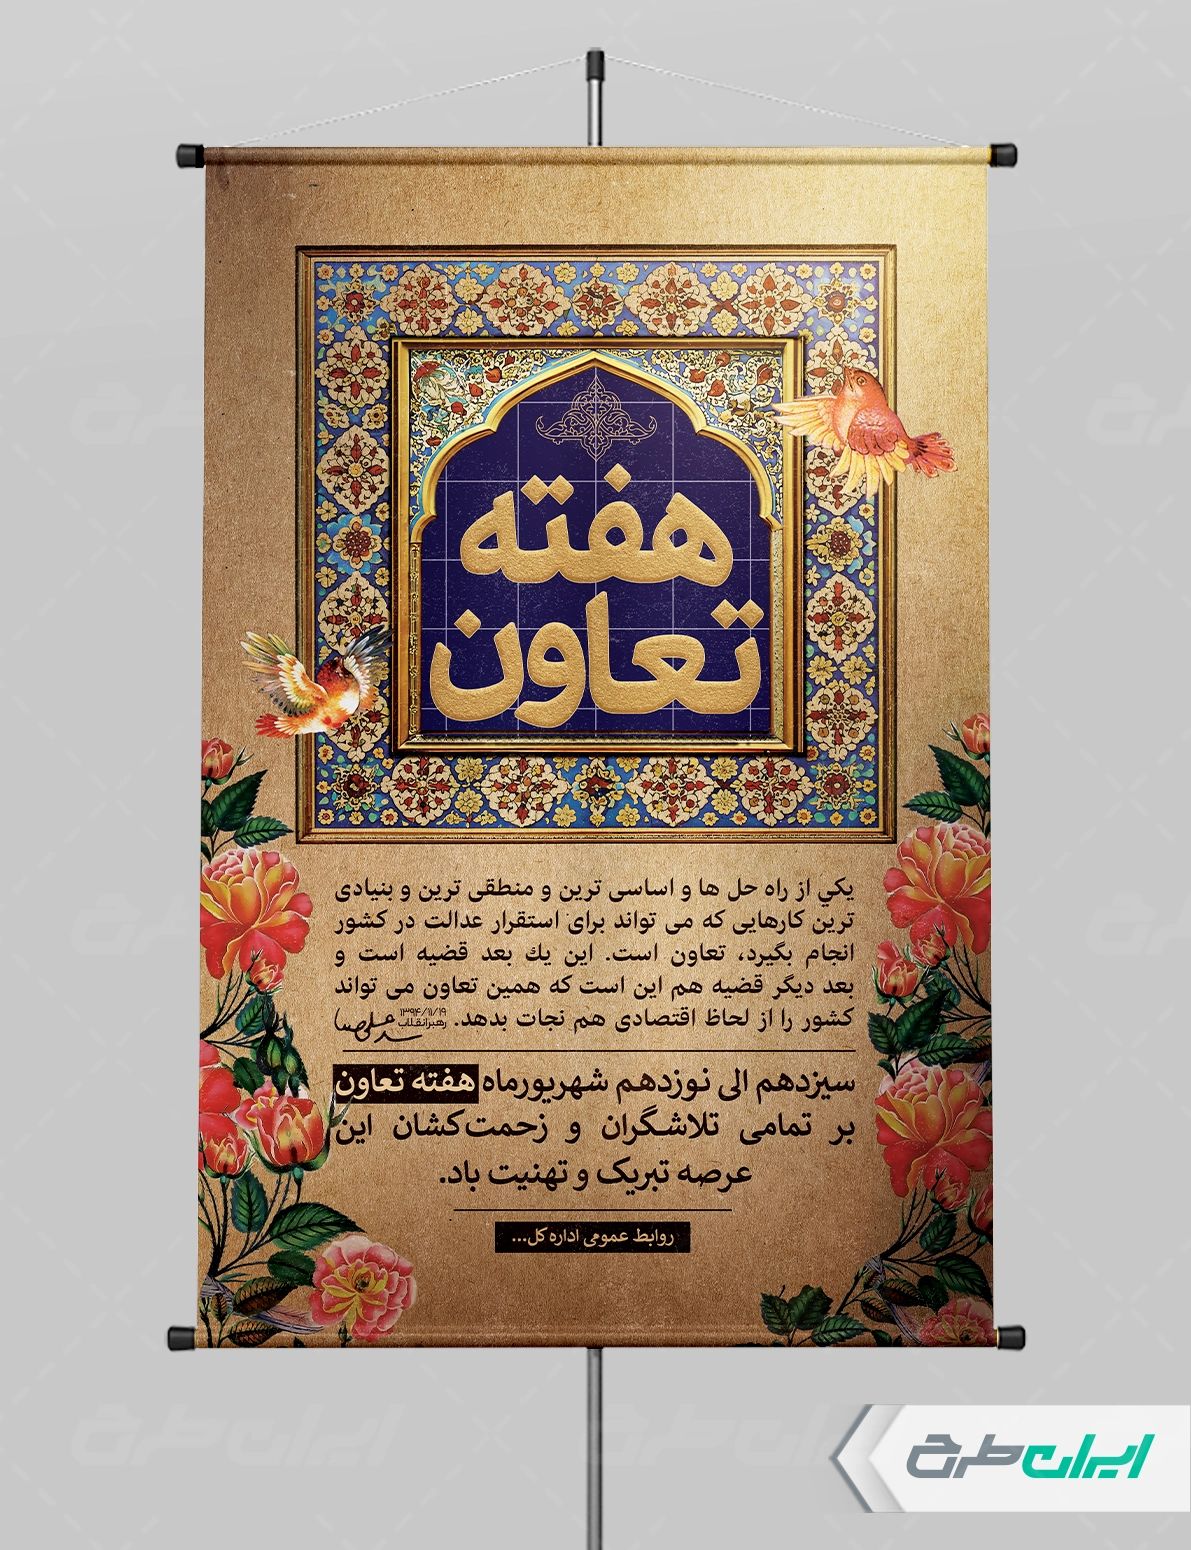 هفته
تعاون
يكي از راه حل ها و اساسی ترین و منطقی ترین و بنیادی
ترین کارهایی که می تواند برای استقرار عدالت در کشور
انجام بگیرد، تعاون است. این یك بعد قضیه است و
بعد دیگر قضیه هم این است که همین تعاون می تواند
کشور را از لحاظ اقتصادی هم نجات بدهد.
۱۳۹۴/۱۱/۱۹
رهبر انقلاب
سیزدهم الی نوزدهم شهریورماه هفته تعاون
بر تمامی تلاشگران و زحمت‌کشان این
عرصه تبریک و تهنیت باد.
روابط عمومی اداره کل...
ایران طرح